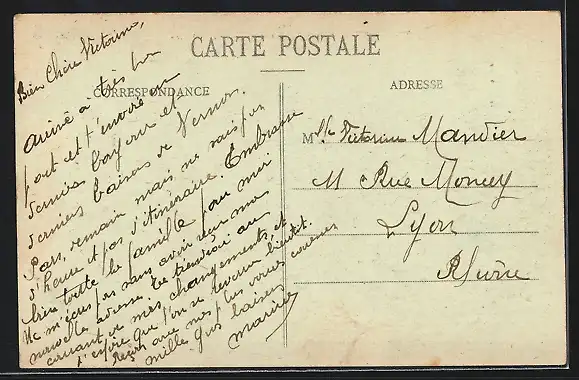 CARTE POSTALE
CORRESPONDANCE
ADRESSE
Bien Chère Victorine,
arrivé à très bon
port et t'envoie un
dernier bonjour et
derniers baisers de Vernon.
Pars, demain mais ne sais pas
d'heure et pas d'itinéraire. Embrasse
bien toute la famille pour moi
Ne m'écris pas sans avoir reçu ma
nouvelle adresse. Te tiendrai au
courant de mes changements, et
t'espère que l'on se reverra bientôt.
Reçois avec mes plus doux
mille gros baisers
M<sup>lle</sup> Victorine Mandier
11 Rue Moncey
Lyon
Rhône